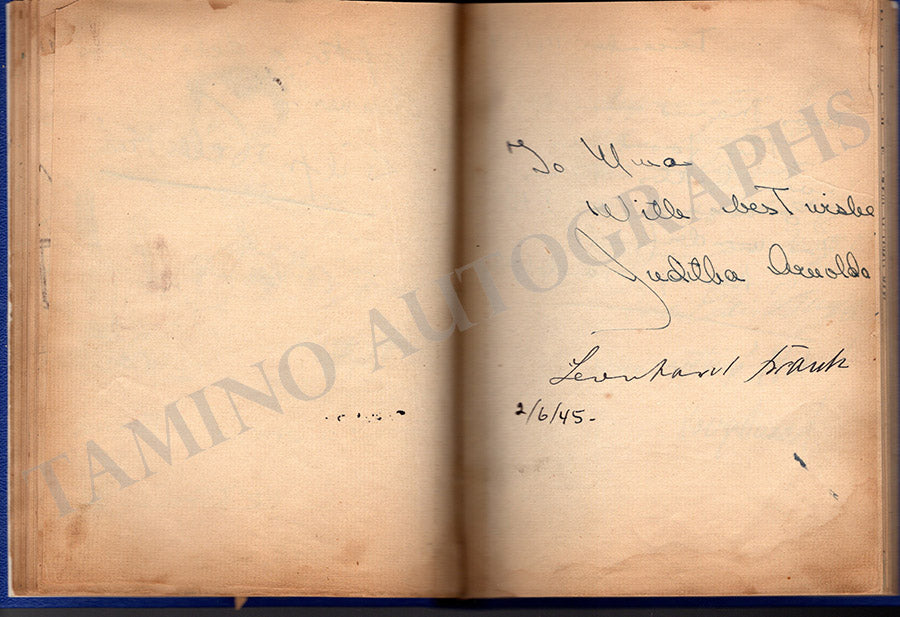 To Mma
With best wishe
Juditha Arnolds
Leonhard Frank
2/6/45-
TAMINO AUTOGRAPHS